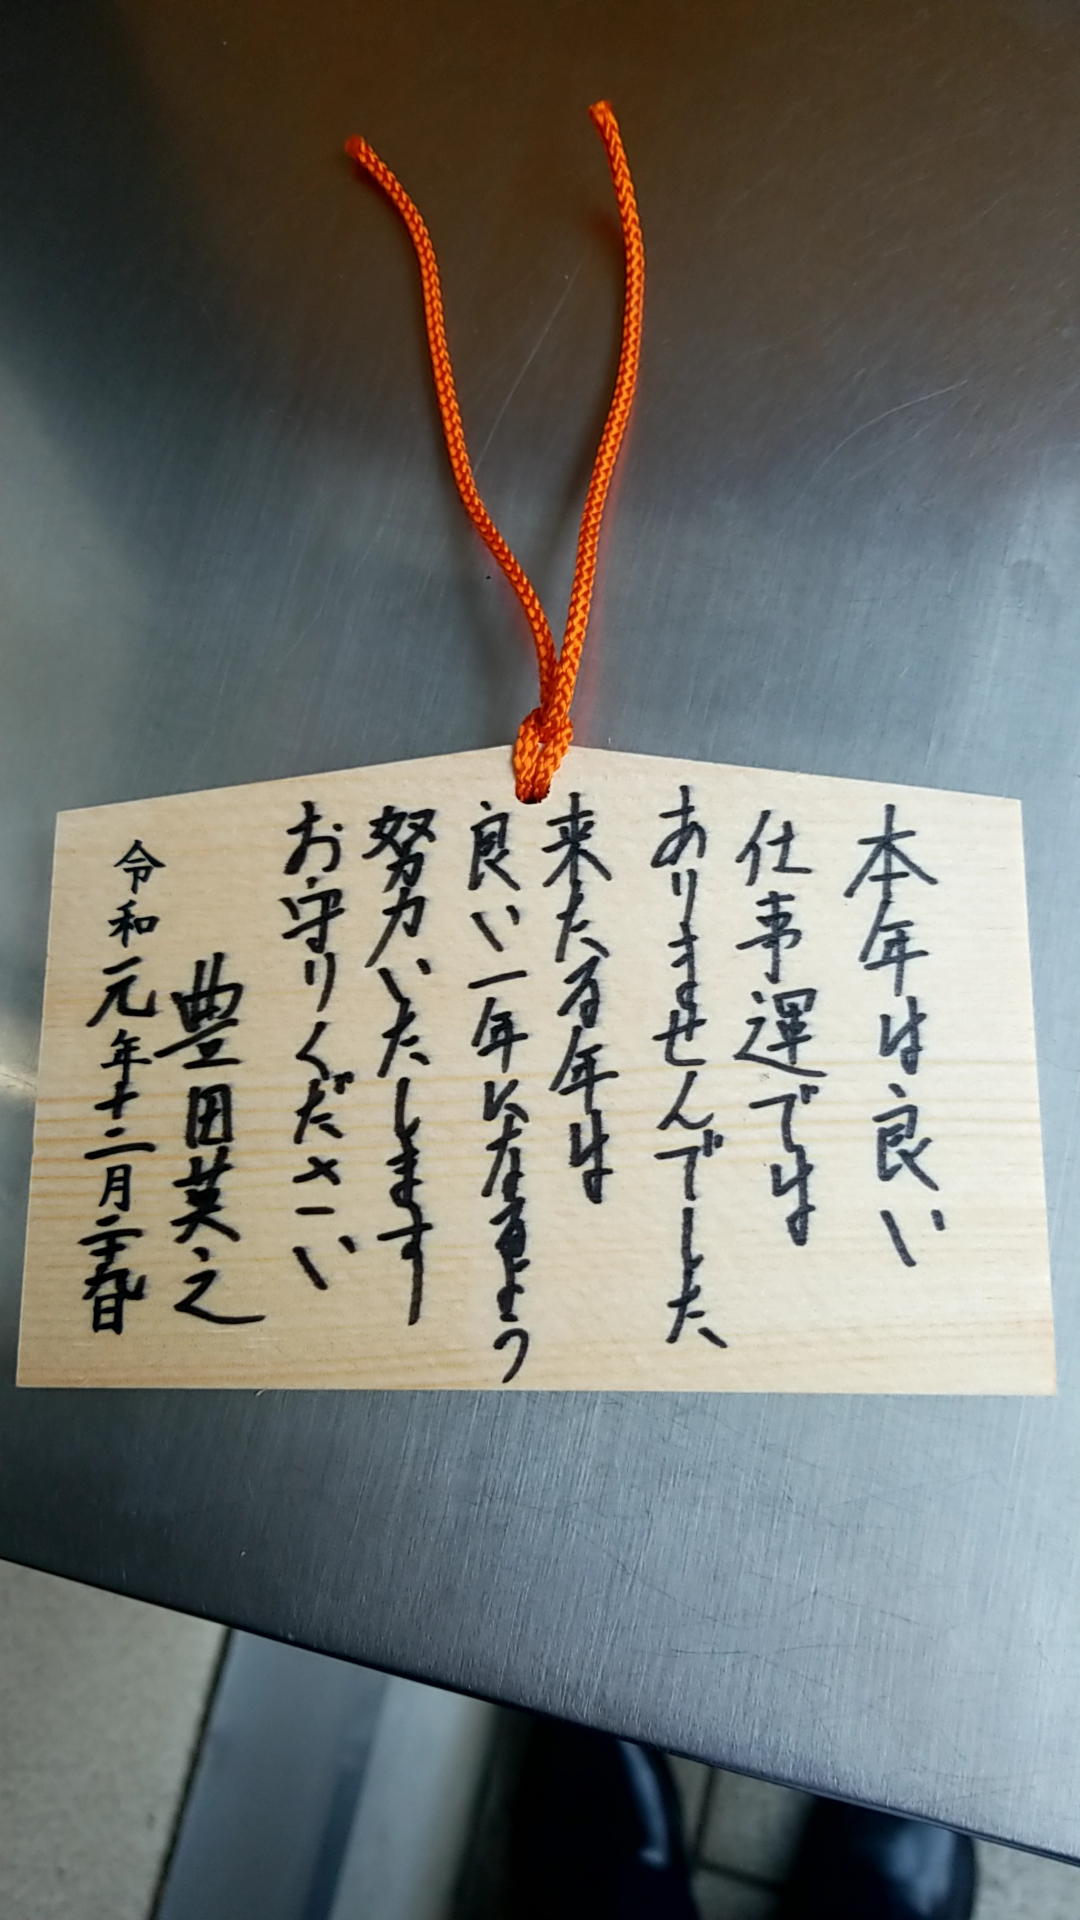 本年は良い
仕事運では
ありませんでした
来たる年は
良い一年になるよう
努力いたします
お守りください
豊田英之
令和元年十二月二十九日